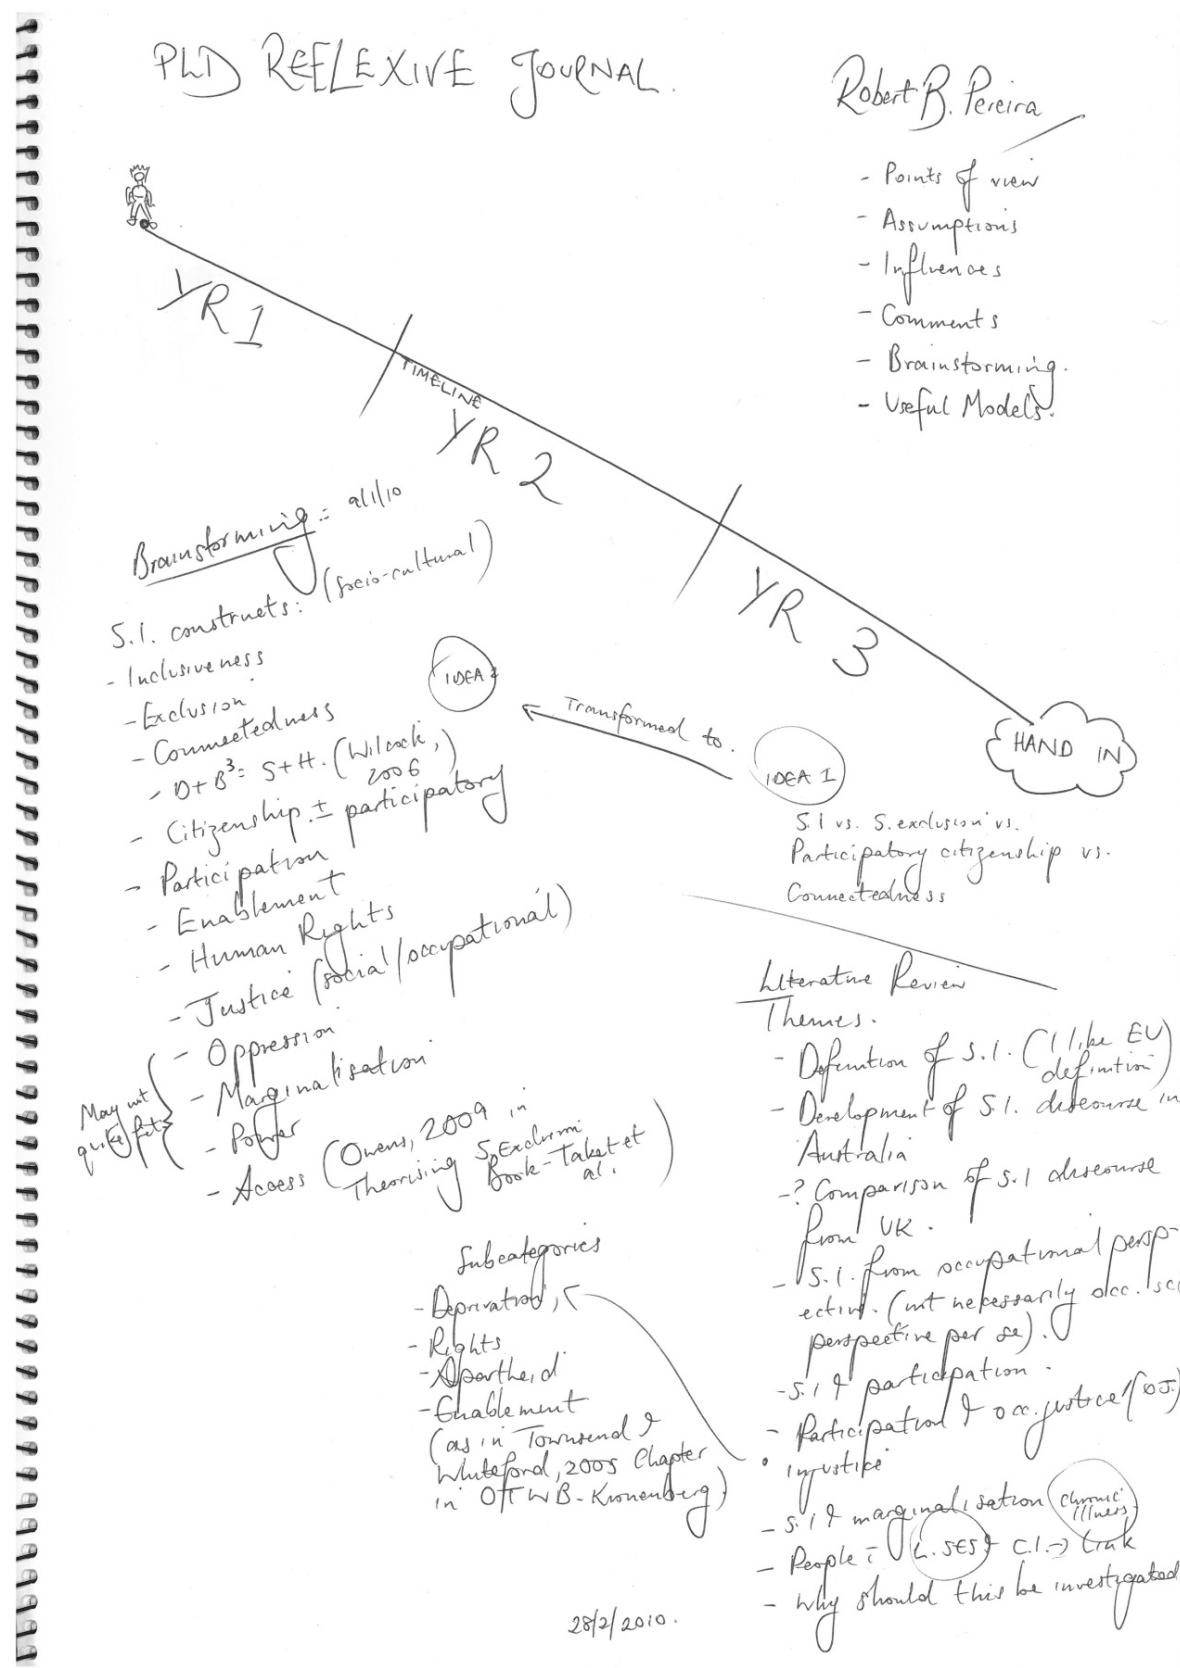 PhD REFLEXIVE JOURNAL.
Robert B. Pereira
- Points of view
- Assumptions
- Influences
- Comments
- Brainstorming.
- Useful Models.
YR 1
TIMELINE
YR 2
YR 3
HAND IN
Brainstorming: 9/1/10
S.I. constructs: (socio-cultural)
- Inclusiveness
- Exclusion
- Connectedness
- D+B³= S+H. (Wilcock,
2006)
- Citizenship ± participatory
- Participation
- Enablement
- Human Rights
- Justice (social/occupational)
- Oppression
- Marginalisation
- Power
May not
quite fit
- Access (Owens, 2009 in
Theorising S.Exclusion
Book - Taket et
al.)
IDEA 2
Transformed to.
IDEA 1
S.I vs. S.exclusion vs.
Participatory citizenship vs.
Connectedness
Literature Review
Themes.
- Definition of S.I. (I like EU
definition)
- Development of S.I. discourse in
Australia
-? Comparison of S.I discourse
from UK.
- S.I. from occupational persp-
ective. (not necessarily occ. sci
perspective per se).
- S.I & participation.
- Participation & occ. justice/(OJ.)
• injustice
- S.I & marginalisation (chronic
illness)
- People c̄ L.SES & C.I. → Link
- Why should this be investigated
Subcategories
- Deprivation,
- Rights
- Apartheid
- Enablement
(as in Townsend &
Whiteford, 2005 Chapter
in OTWB - Kronenberg)
28/2/2010.